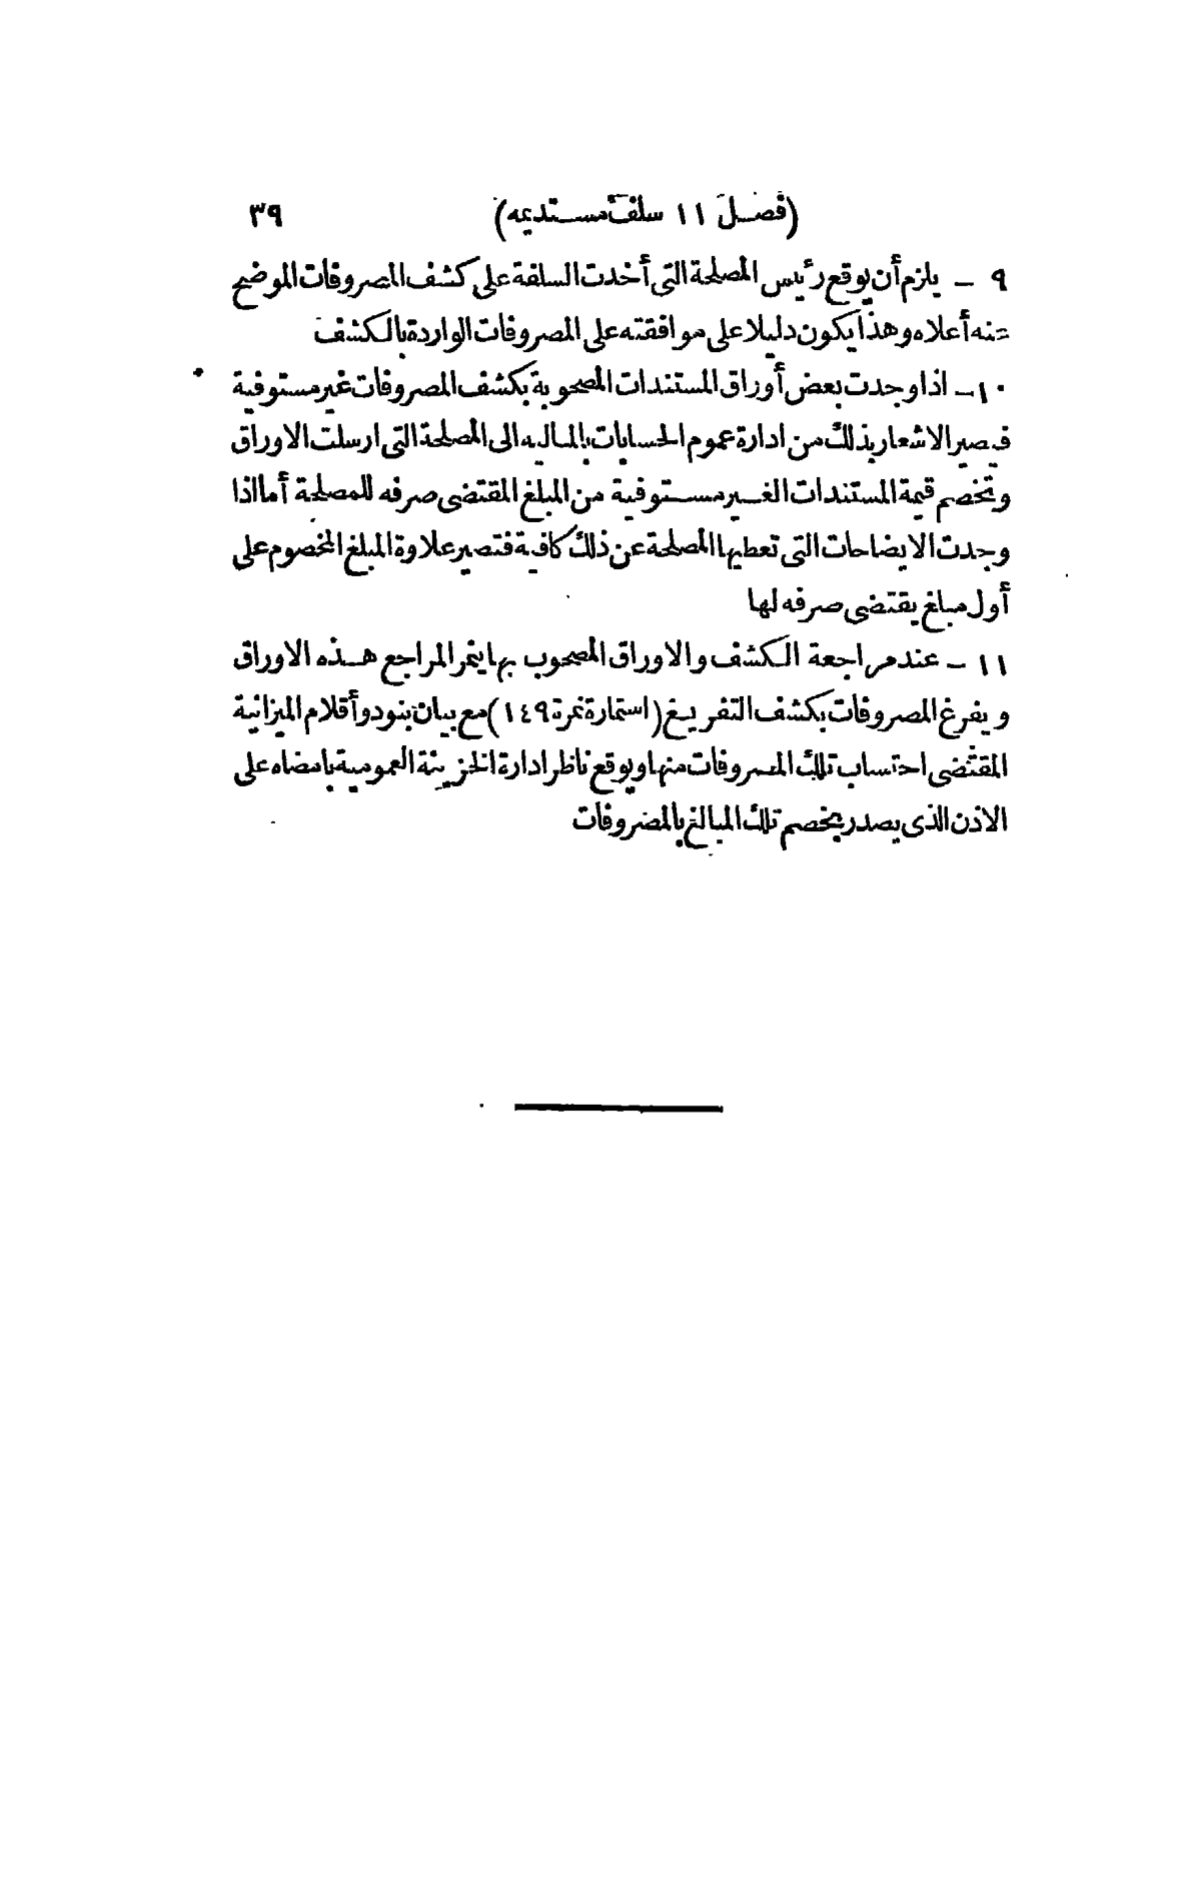 (فصل ١١ سلف مستديمه) ٣٩
٩ – يلزم أن يوقع رئيس المصلحة التى أخدت السلفة على كشف المصروفات الموضح
عنه أعلاه وهذا يكون دليلا على موافقته على المصروفات الواردة بالكشف
١٠ – اذا وجدت بعض أوراق المستندات المصحوبة بكشف المصروفات غير مستوفية
فيصير الاشعار بذلك من ادارة عموم الحسابات بالماليه الى المصلحة التى ارسلت الاوراق
وتخصم قيمة المستندات الغير مستوفية من المبلغ المقتضى صرفه للمصلحة أما اذا
وجدت الايضاحات التى تعطيها المصلحة عن ذلك كافية فتصير علاوة المبلغ المخصوم على
أول مبلغ يقتضى صرفه لها
١١ – عند مراجعة الكشف والاوراق المصحوب بها ينمر المراجع هذه الاوراق
ويفرغ المصروفات بكشف التفريغ (استمارة نمرة ١٤٩) مع بيان بنود وأقلام الميزانية
المقتضى احتساب تلك المصروفات منها ويوقع ناظر ادارة الخزينة العمومية بامضاه على
الاذن الذى يصدر بخصم تلك المبالغ بالمصروفات